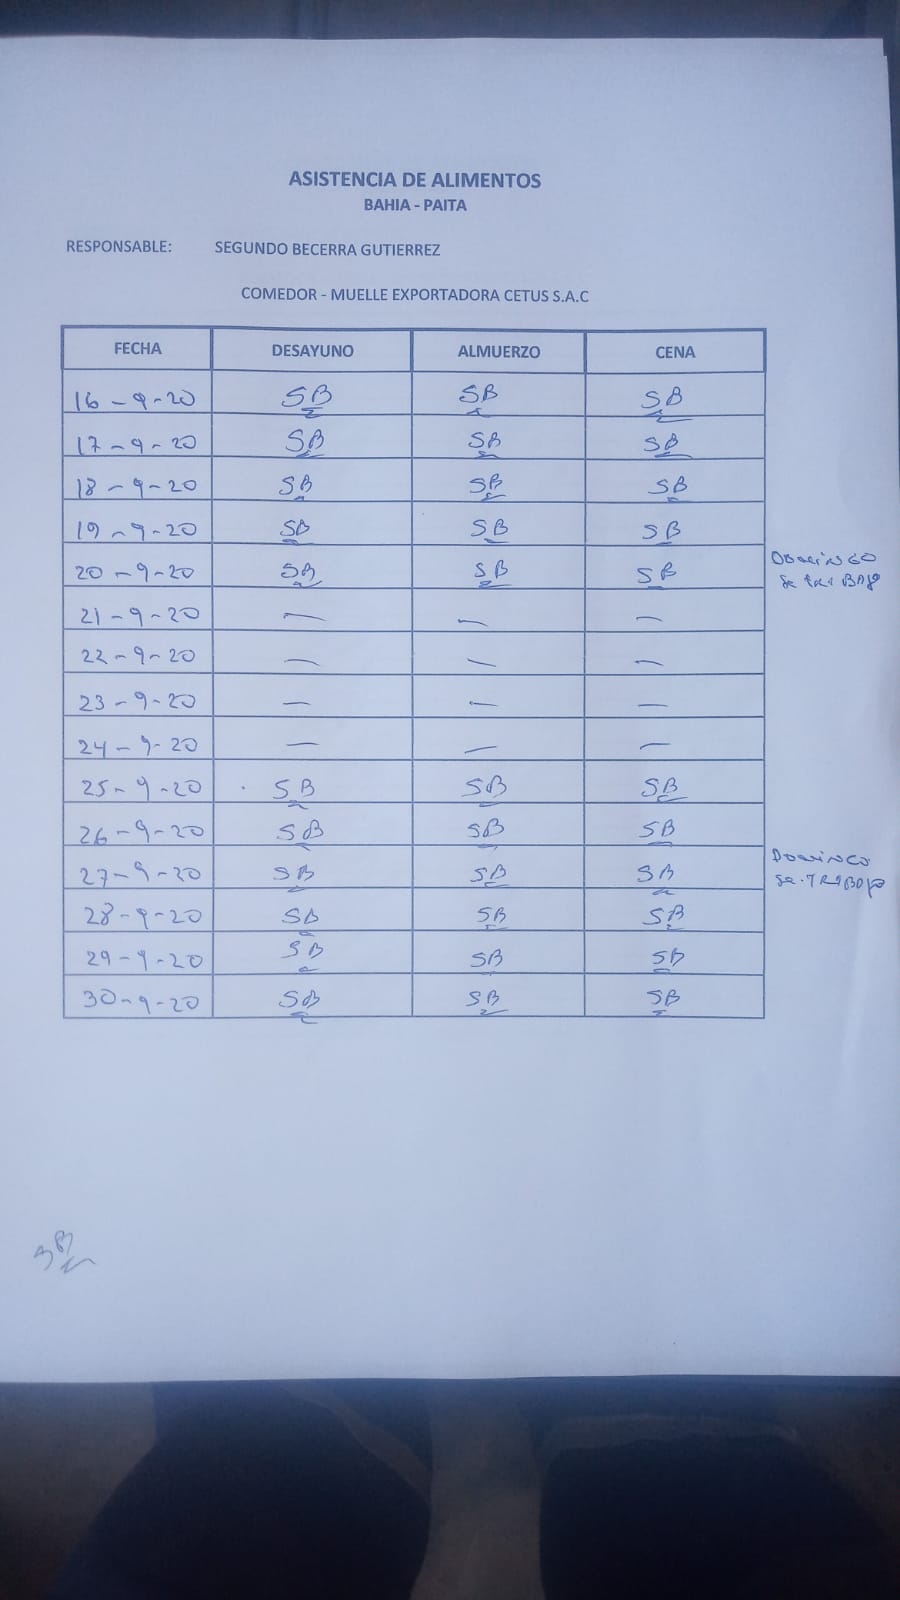 ASISTENCIA DE ALIMENTOS
BAHIA - PAITA
RESPONSABLE: SEGUNDO BECERRA GUTIERREZ
COMEDOR - MUELLE EXPORTADORA CETUS S.A.C
FECHA DESAYUNO ALMUERZO CENA
16-9-20 SB SB SB
17-9-20 SB SB SB
18-9-20 SB SB SB
19-9-20 SB SB SB
20-9-20 SB SB SB DOMINGO
se TRABAJO
21-9-20 — — —
22-9-20 — — —
23-9-20 — — —
24-9-20 — — —
25-9-20 SB SB SB
26-9-20 SB SB SB
27-9-20 SB SB SB DOMINGO
se TRABAJO
28-9-20 SB SB SB
29-9-20 SB SB SB
30-9-20 SB SB SB
SB